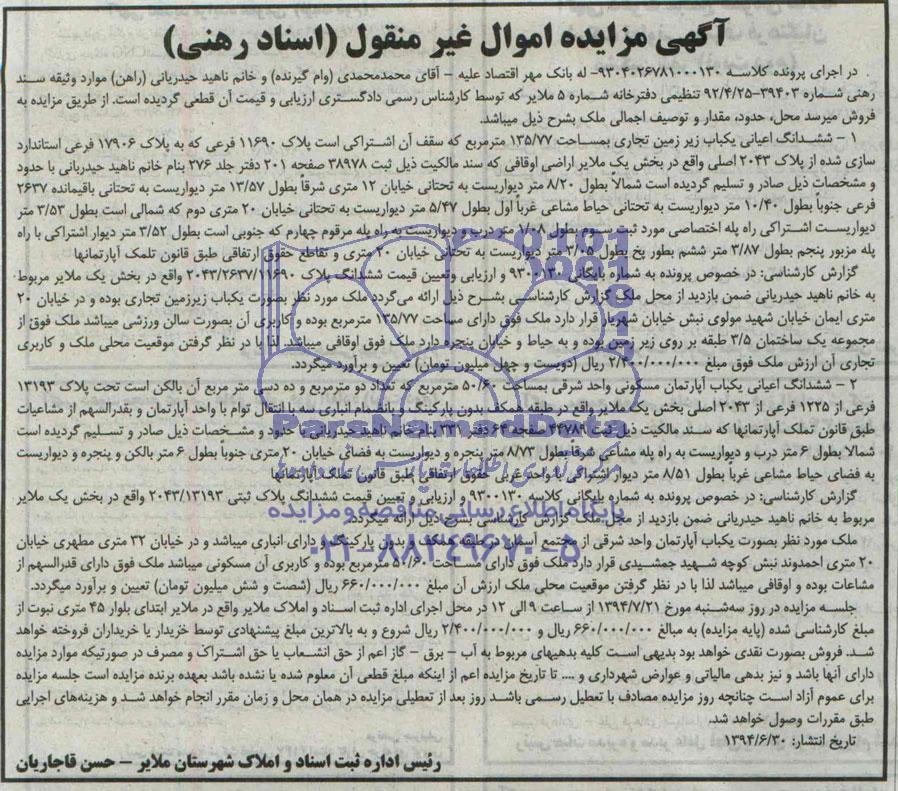 آگهی مزایده اموال غیر منقول (اسناد رهنی)
در اجرای پرونده کلاسه ۹۳۰۴۰۲۶۷۸۱۰۰۰۱۳۰ له بانک مهر اقتصاد علیه – آقای محمدمحمدی (وام گیرنده) و خانم ناهید حیدریانی (راهن) موارد وثیقه سند
رهنی شماره ۳۹۴۰۳–۹۲/۴/۲۵ تنظیمی دفترخانه شماره ۵ ملایر که توسط کارشناس رسمی دادگستری ارزیابی و قیمت آن قطعی گردیده است. از طریق مزایده به
فروش میرسد محل، حدود، مقدار و توصیف اجمالی ملک بشرح ذیل میباشد.
۱ – ششدانگ اعیانی یکباب زیر زمین تجاری بمساحت ۱۳۵/۷۷ مترمربع که سقف آن اشتراکی است پلاک ۱۱۶۹۰ فرعی که به پلاک ۱۷۹۰۶ فرعی استاندارد
سازی شده از پلاک ۲۰۴۳ اصلی واقع در بخش یک ملایر اراضی اوقافی که سند مالکیت ذیل ثبت ۳۸۹۷۸ صفحه ۲۰۱ دفتر جلد ۲۷۶ بنام خانم ناهید حیدریانی با حدود
و مشخصات ذیل صادر و تسلیم گردیده است شمالاً بطول ۸/۲۰ متر دیواریست به تحتانی خیابان ۱۲ متری شرقاً بطول ۱۳/۵۷ متر دیواریست به تحتانی باقیمانده ۲۶۳۷
فرعی جنوباً بطول ۱۰/۴۰ متر دیواریست به تحتانی حیاط مشاعی غرباً اول بطول ۵/۴۷ متر دیواریست به تحتانی خیابان ۲۰ متری دوم که شمالی است بطول ۳/۵۳ متر
دیواریست اشتراکی راه پله اختصاصی مورد ثبت سوم بطول ۱/۰۸ متر درب و دیواریست به راه پله مرقوم چهارم که جنوبی است بطول ۳/۵۲ متر دیوار اشتراکی با راه
پله مزبور پنجم بطول ۳/۸۷ متر ششم بطور پخ بطول ۳/۸۰ متر دیواریست به تحتانی خیابان ۲۰ متری و تقاطع حقوق ارتفاقی طبق قانون تلمک آپارتمانها
گزارش کارشناسی: در خصوص پرونده به شماره بایگانی ۹۳۰۰۱۳۰ و ارزیابی وتعیین قیمت ششدانگ پلاک ۲۰۴۳/۲۶۳۷/۱۱۶۹۰ واقع در بخش یک ملایر مربوط
به خانم ناهید حیدریانی ضمن بازدید از محل ملک گزارش کارشناسی بشرح ذیل ارائه می‌گردد ملک مورد نظر بصورت یکباب زیرزمین تجاری بوده و در خیابان ۲۰
متری ایمان خیابان شهید مولوی نبش خیابان شهریار قرار دارد ملک فوق دارای مساحت ۱۳۵/۷۷ مترمربع بوده و کاربری آن بصورت سالن ورزشی میباشد ملک فوق از
مجموعه یک ساختمان ۳/۵ طبقه بر روی زیر زمین بوده و به حیاط و خیابان پنجره دارد ملک فوق اوقافی میباشد. لذا با در نظر گرفتن موقعیت محلی ملک و کاربری
تجاری آن ارزش ملک فوق مبلغ ۲/۴۰۰/۰۰۰/۰۰۰ ریال (دویست و چهل میلیون تومان) تعیین و برآورد میگردد.
۲ – ششدانگ اعیانی یکباب آپارتمان مسکونی واحد شرقی بمساحت ۵۰/۶۰ مترمربع که تعداد دو مترمربع و ده دسی متر مربع آن بالکن است تحت پلاک ۱۳۱۹۳
فرعی از ۱۲۲۵ فرعی از ۲۰۴۳ اصلی بخش یک ملایر واقع در طبقه همکف بدون پارکینگ و بانضمام انباری سه با انتقال توام با واحد آپارتمان و بقدرالسهم از مشاعیات
طبق قانون تملک آپارتمانها که سند مالکیت ذیل ثبت ۴۴۷۸۹ صفحه ۶۴ دفتر ۳۳۱ بنام خانم ناهید حیدریانی با حدود و مشخصات ذیل صادر و تسلیم گردیده است
شمالاً بطول ۶ متر درب و دیواریست به راه پله مشاعی شرقاً بطول ۸/۷۳ متر پنجره و دیواریست به فضای خیابان ۲۰ متری جنوباً بطول ۶ متر بالکن و پنجره و دیواریست
به فضای حیاط مشاعی غرباً بطول ۸/۵۱ متر دیوار اشتراکی با واحد غربی حقوق ارتفاقی طبق قانون تملک آپارتمانها
گزارش کارشناسی: در خصوص پرونده به شماره بایگانی کلاسه ۹۳۰۰۱۳۰ و ارزیابی و تعیین قیمت ششدانگ پلاک ثبتی ۲۰۴۳/۱۳۱۹۳ واقع در بخش یک ملایر
مربوط به خانم ناهید حیدریانی ضمن بازدید از محل ملک گزارش کارشناسی بشرح ذیل ارائه میگردد.
ملک مورد نظر بصورت یکباب آپارتمان واحد شرقی از مجتمع آسمان در طبقه همکف و بدون پارکینگ و دارای انباری میباشد و در خیابان ۳۲ متری مطهری خیابان
۲۰ متری احمدوند نبش کوچه شهید جمشیدی قرار دارد ملک فوق دارای مساحت ۵۰/۶۰ مترمربع بوده و کاربری آن مسکونی میباشد ملک فوق دارای قدرالسهم از
مشاعات بوده و اوقافی میباشد لذا با در نظر گرفتن موقعیت محلی ملک ارزش آن مبلغ ۶۶۰/۰۰۰/۰۰۰ ریال (شصت و شش میلیون تومان) تعیین و برآورد میگردد.
جلسه مزایده در روز سه‌شنبه مورخ ۱۳۹۴/۷/۲۱ از ساعت ۹ الی ۱۲ در محل اجرای اداره ثبت اسناد و املاک ملایر واقع در ملایر ابتدای بلوار ۴۵ متری نبوت از
مبلغ کارشناسی شده (پایه مزایده) به مبالغ ۶۶۰/۰۰۰/۰۰۰ ریال و ۲/۴۰۰/۰۰۰/۰۰۰ ریال شروع و به بالاترین مبلغ پیشنهادی توسط خریدار یا خریداران فروخته خواهد
شد. فروش بصورت نقدی خواهد بود بدیهی است کلیه بدهیهای مربوط به آب – برق – گاز اعم از حق انشعاب یا حق اشتراک و مصرف در صورتیکه موارد مزایده
دارای آنها باشد و نیز بدهی مالیاتی و عوارض شهرداری و .... تا تاریخ مزایده اعم از اینکه مبلغ قطعی آن معلوم شده یا نشده باشد بعهده برنده مزایده است جلسه مزایده
برای عموم آزاد است چنانچه روز مزایده مصادف با تعطیل رسمی باشد روز بعد از تعطیلی مزایده در همان محل و زمان مقرر انجام خواهد شد و هزینه‌های اجرایی
طبق مقررات وصول خواهد شد.
تاریخ انتشار: ۱۳۹۴/۶/۳۰
رئیس اداره ثبت اسناد و املاک شهرستان ملایر – حسن قاجاریان
ParsNamadData
پایگاه اطلاع رسانی مناقصه و مزایده
۰۲۱–۸۸۳۴۹۶۷۰–۵